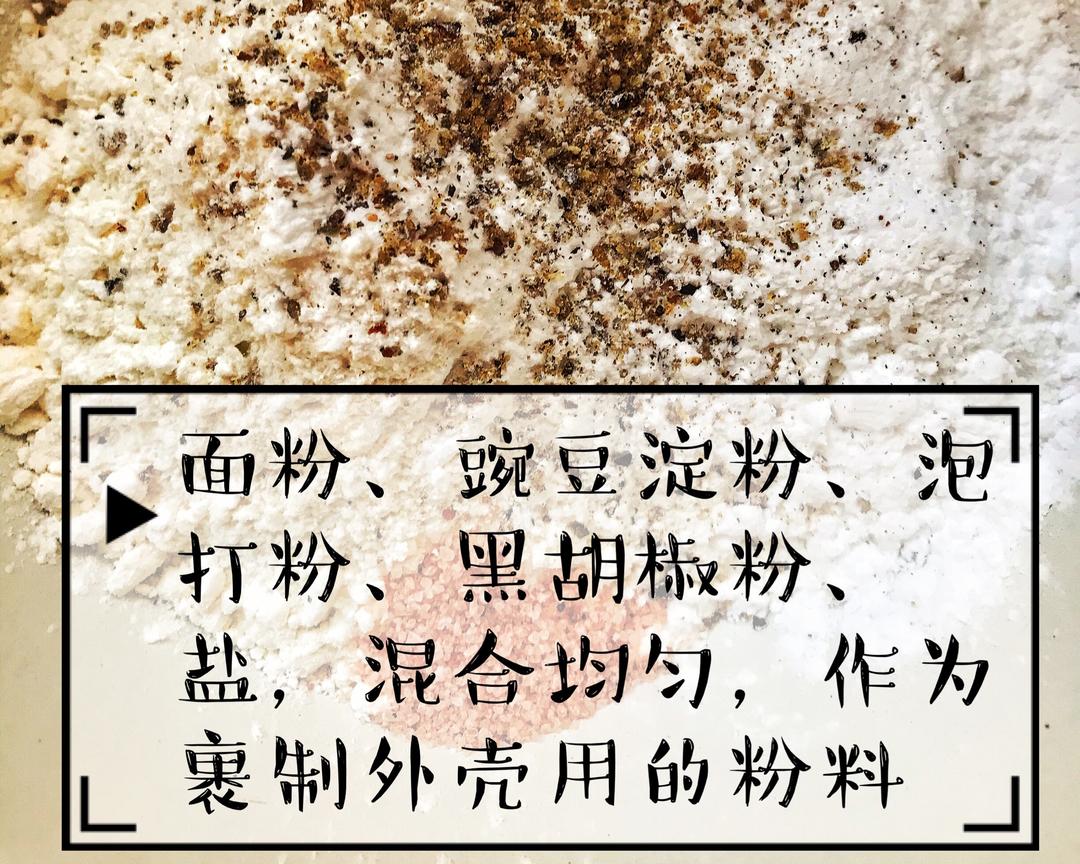 面粉、豌豆淀粉、泡
打粉、黑胡椒粉、
盐，混合均匀，作为
裹制外壳用的粉料